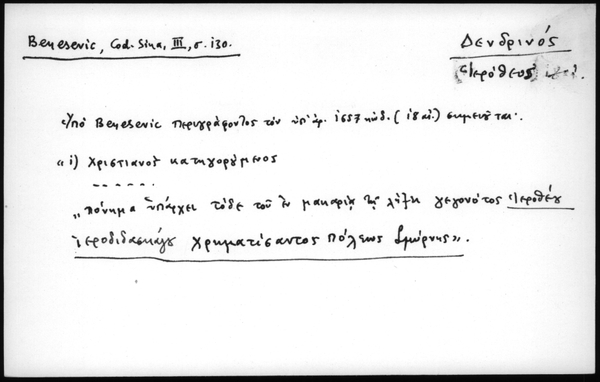 Benesevic, Cod. Sina, III, σ. 130.
Δενδρινός
(Ἱερόθεος)
Ὑπό Benesevic περιγράφοντος τόν ὑπ' ἀρ. 1657 κώδ. (18 αἰ.) σημειοῦται·
« 1) Χριστιανός κατηγορούμενος
- - - - - .
„ πόνημα ὑπάρχει τόδε τοῦ ἐν μακαρίᾳ τῇ λήξει γεγονότος Ἱεροθέου
Ἱεροδιδασκάλου χρηματίσαντος πόλεως Σμύρνης».